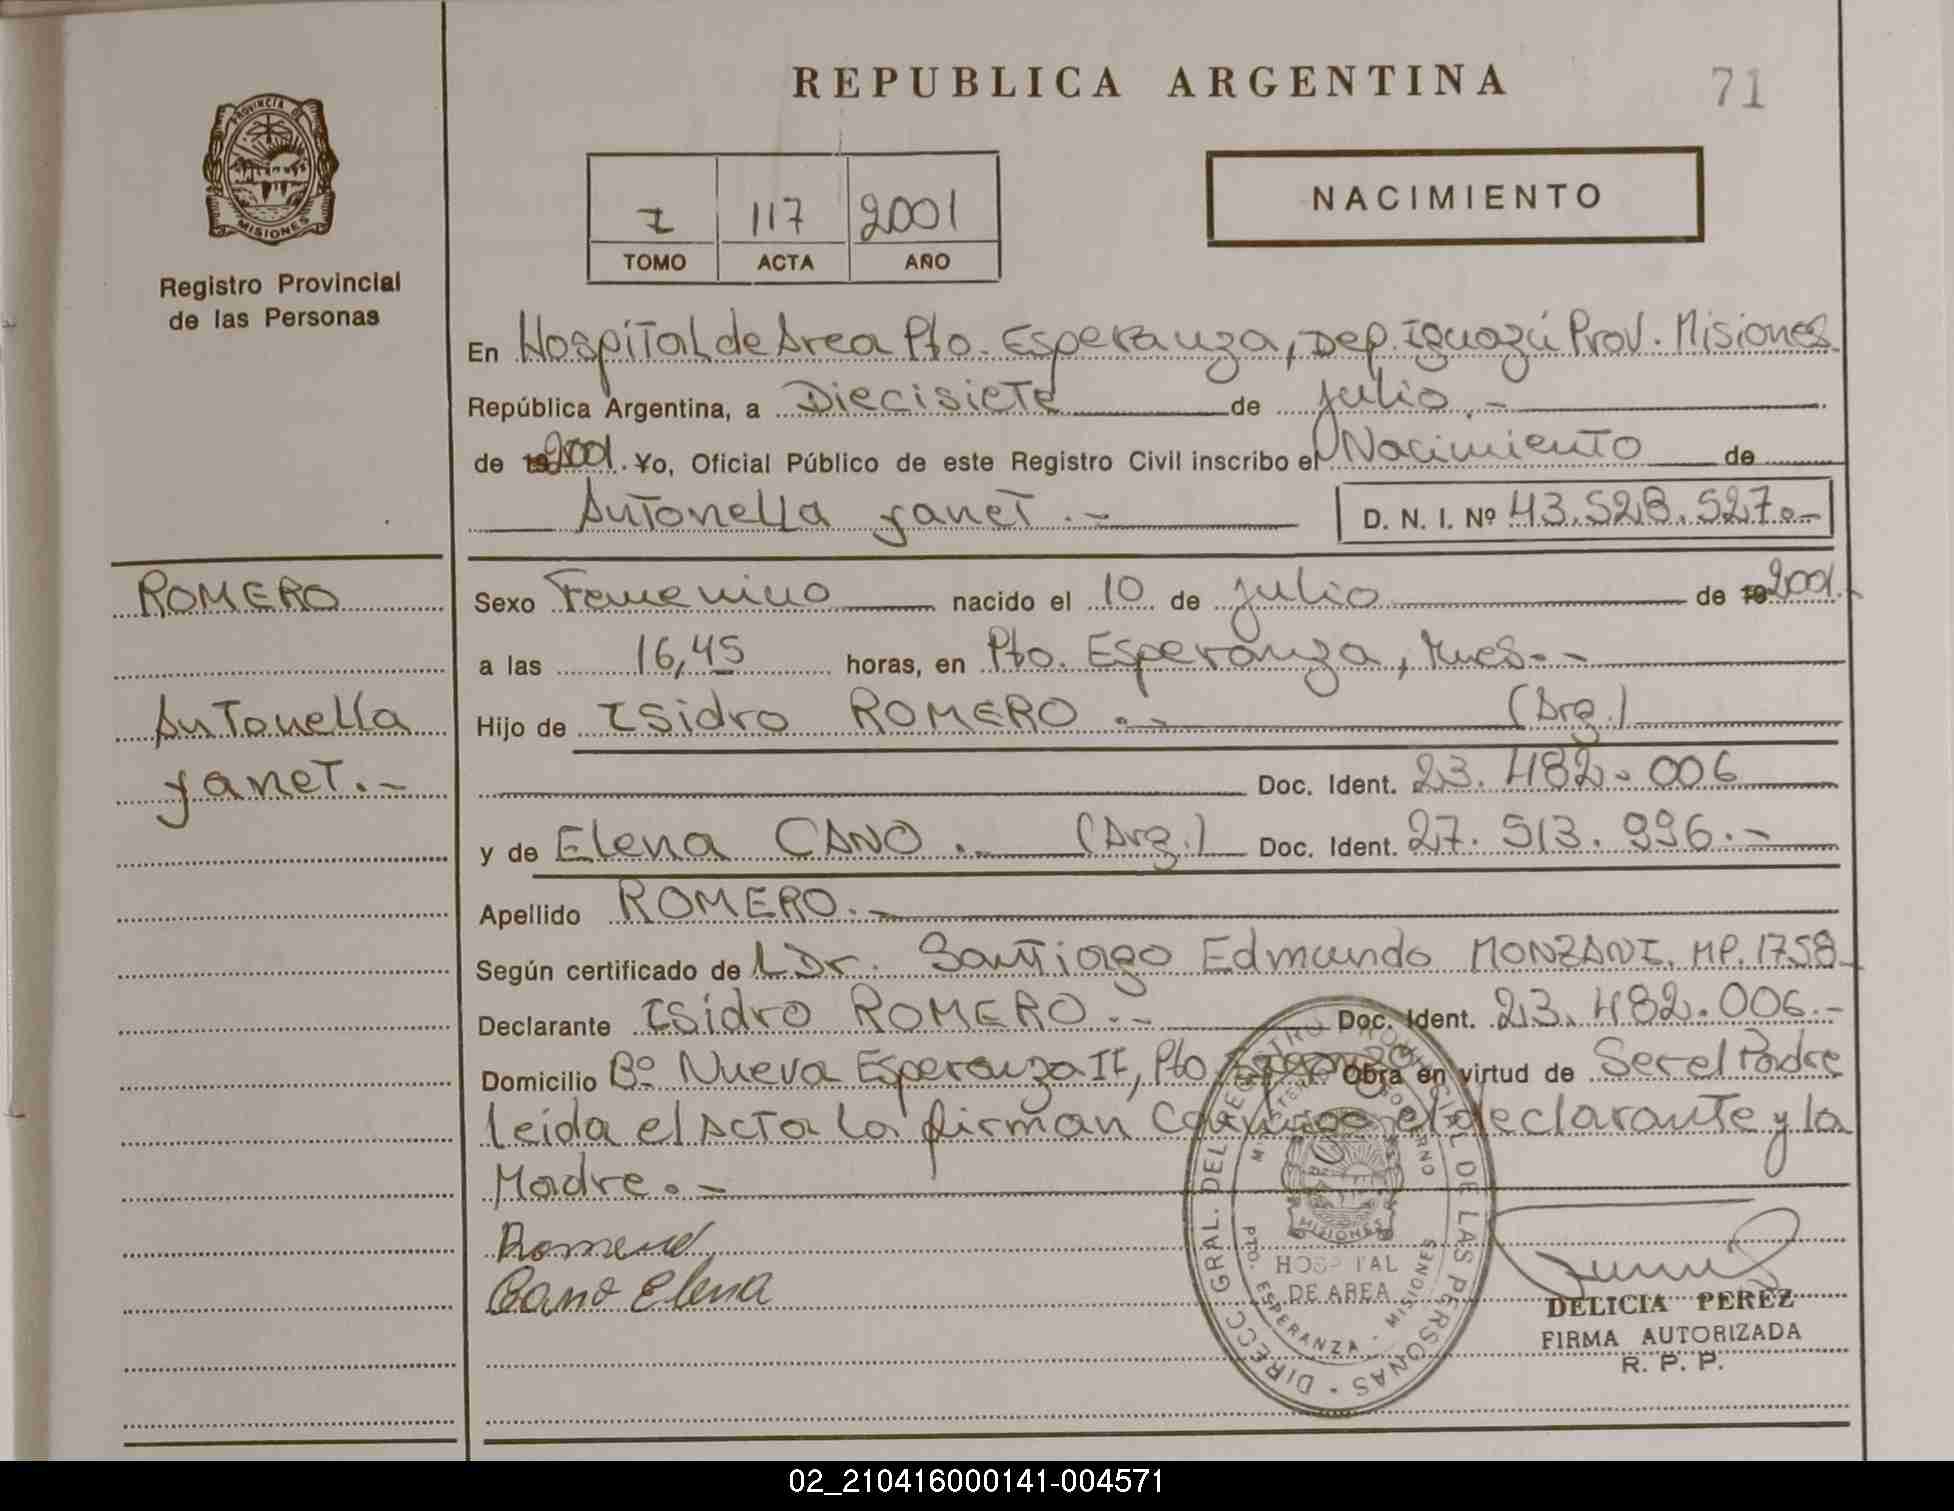 REPUBLICA ARGENTINA
71
PROVINCIA DE
MISIONES
Registro Provincial
de las Personas
I 117 2001
TOMO ACTA AÑO
NACIMIENTO
En Hospital de Area Pto. Esperanza, Dep. Iguazú Prov. Misiones
República Argentina, a Diecisiete de julio.-
de 19 2001. Yo, Oficial Público de este Registro Civil inscribo el Nacimiento de
Antonella Yanet.-
D. N. I. Nº 43.528.527.-
ROMERO
Antonella
Yanet.-
Sexo Femenino nacido el 10 de julio de 19 2001.-
a las 16,45 horas, en Pto. Esperanza, Mnes.-
Hijo de Isidro ROMERO.- (Arg.)
Doc. Ident. 23.482.006
y de Elena CANO.- (Arg.) Doc. Ident. 27.513.996.-
Apellido ROMERO.-
Según certificado del Dr. Santiago Edmundo MONZANI. MP. 1758.-
Declarante Isidro ROMERO.- Doc. Ident. 23.482.006.-
Domicilio Bº Nueva Esperanza II, Pto. Esperanza Obra en virtud de Ser el Padre
Leida el Acta la firman Conmigo el declarante y la
Madre.-
Romero
Cano Elena
DIRECC. GRAL. DEL REGISTRO PROVINCIAL DE LAS PERSONAS
MISIONES
HOSPITAL
DE AREA
PTO. ESPERANZA - MISIONES
DELICIA PEREZ
FIRMA AUTORIZADA
R. P. P.
02_210416000141-004571